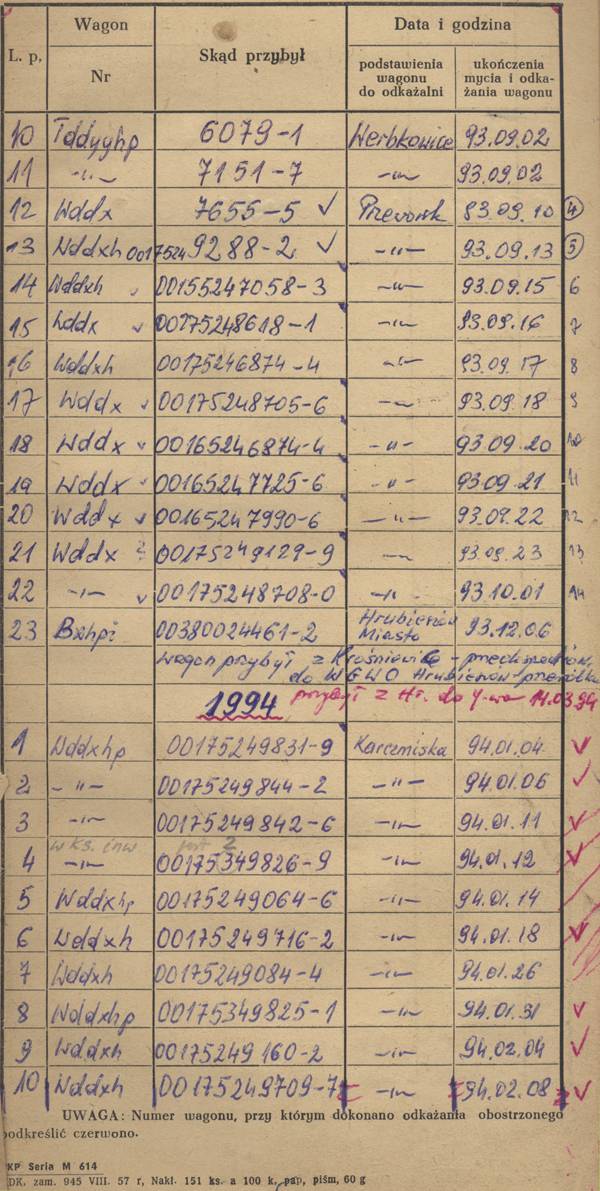 Wagon
Data i godzina
L. p.
Skąd przybył
Nr
podstawienia wagonu do odkażalni
ukończenia mycia i odka-żania wagonu
10 Tddyyhp 6079-1 Werbkowice 93.09.02
11 -"- 7151-7 -"- 93.09.02
12 Wddx 7655-5 ✓ Przeworsk 83.09.10 4
13 Wddxh 00175249288-2 ✓ -"- 93.09.13 5
14 Wddxh 00155247058-3 -"- 93.09.15 6
15 Wddx ✓ 00175248618-1 -"- 93.09.16 7
16 Wddxh 00175246874-4 -"- 93.09.17 8
17 Wddx ✓ 00175248705-6 -"- 93.09.18 9
18 Wddx ✓ 00165246874-4 -"- 93.09.20 10
19 Wddx ✓ 00165247725-6 -"- 93.09.21 11
20 Wddx ✓ 00165247990-6 -"- 93.09.22 12
21 Wddx ? 00175249129-9 -"- 93.09.23 13
22 -"- ✓ 00175248708-0 -"- 93.10.01 14
23 Bxhpi 00380024461-2 Hrubieszów Miasto 93.12.06
wagon przybył z Krośniewic -
do WGWO Hrubieszów
1994 przybył z Hr. do 14.03.94
1 Wddxhp 00175249831-9 Karczmiska 94.01.04 ✓
2 -"- 00175249844-2 -"- 94.01.06 ✓
3 -"- 00175249842-6 -"- 94.01.11 ✓
w ks. inw jest 2
4 -"- 00175349826-9 -"- 94.01.12 ✓
5 Wddxhp 00175249064-6 -"- 94.01.14
6 Wddxh 00175249716-2 -"- 94.01.18 ✓
7 Wddxh 00175249084-4 -"- 94.01.26
8 Wddxhp 00175349825-1 -"- 94.01.31 ✓
9 Wddxh 00175249160-2 -"- 94.02.04 ✓
10 Wddxh 00175249709-7 -"- 94.02.08 ✓
UWAGA: Numer wagonu, przy którym dokonano odkażania obostrzonego
podkreślić czerwono.
KP Seria M 614
DK. zam. 945 VIII. 57 r, Nakł. 151 ks. a 100 k. pap, piśm, 60 g